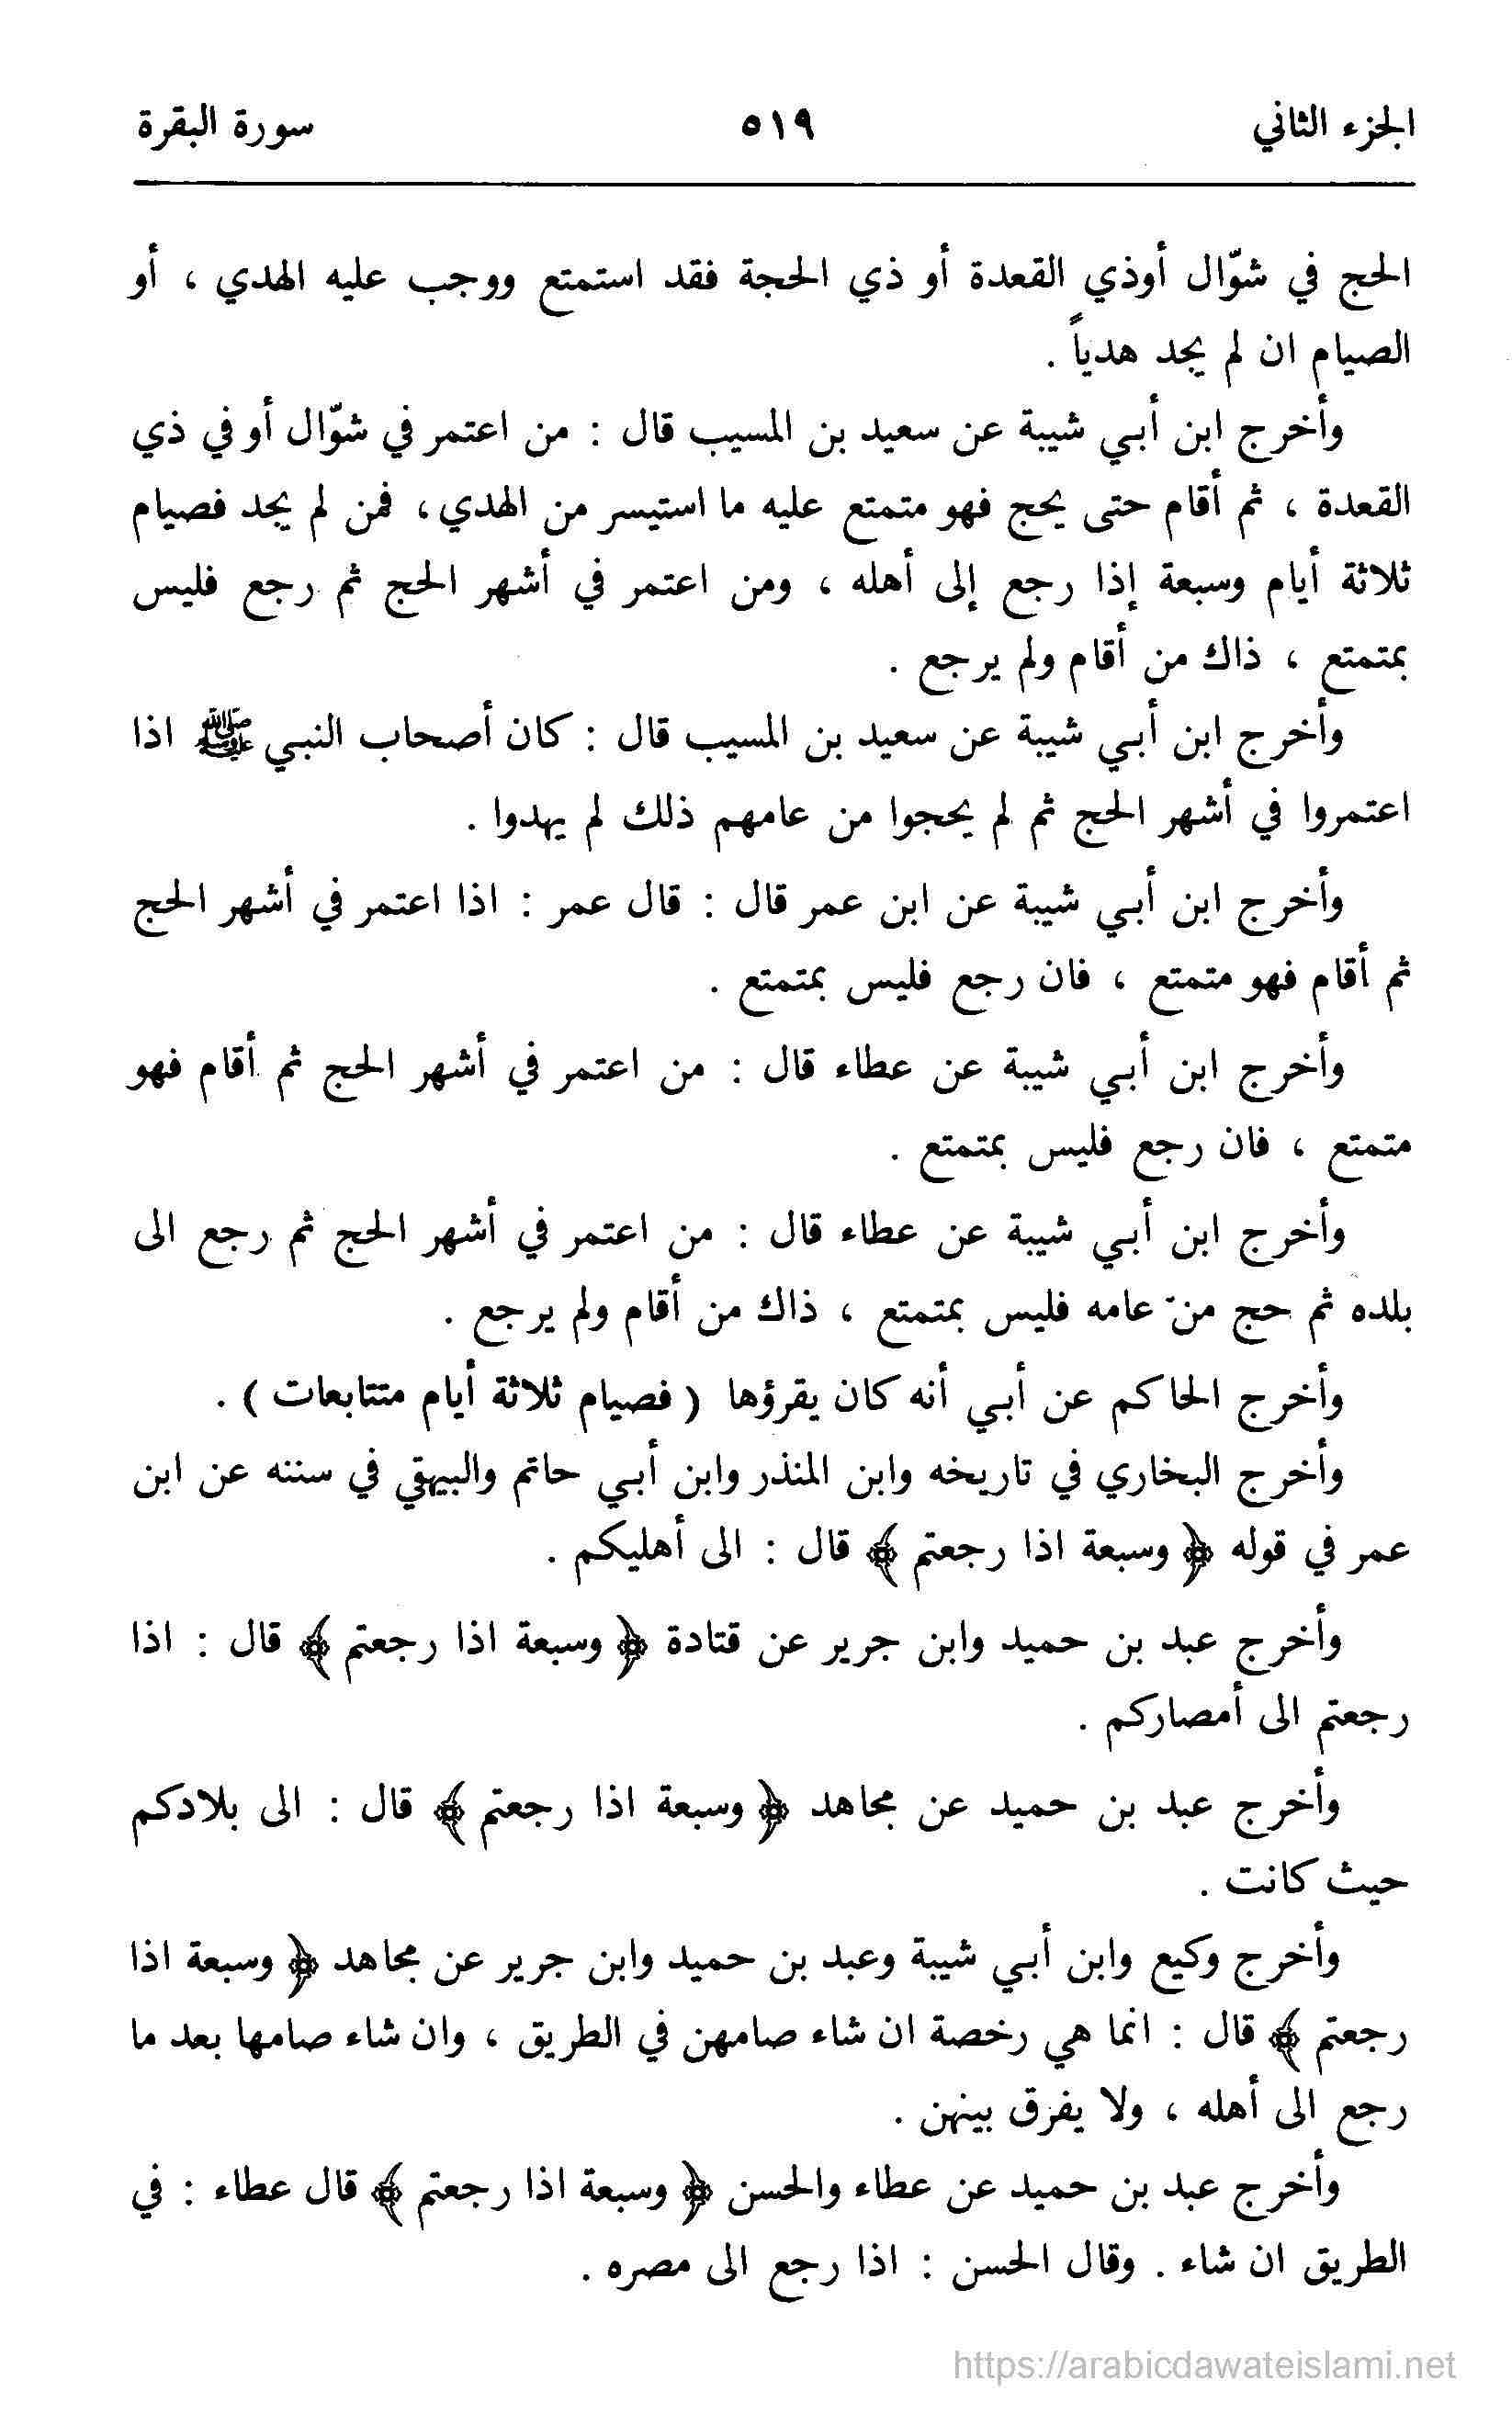 الجزء الثاني ٥١٩ سورة البقرة
الحج في شوّال أوذي القعدة أو ذي الحجة فقد استمتع ووجب عليه الهدي ، أو
الصيام ان لم يجد هدياً .
وأخرج ابن أبي شيبة عن سعيد بن المسيب قال : من اعتمر في شوّال أو في ذي
القعدة ، ثم أقام حتى يحج فهو متمتع عليه ما استيسر من الهدي ، فمن لم يجد فصيام
ثلاثة أيام وسبعة إذا رجع إلى أهله ، ومن اعتمر في أشهر الحج ثم رجع فليس
بمتمتع ، ذاك من أقام ولم يرجع .
وأخرج ابن أبي شيبة عن سعيد بن المسيب قال : كان أصحاب النبي ﷺ اذا
اعتمروا في أشهر الحج ثم لم يحجوا من عامهم ذلك لم يهدوا .
وأخرج ابن أبي شيبة عن ابن عمر قال : قال عمر : اذا اعتمر في أشهر الحج
ثم أقام فهو متمتع ، فان رجع فليس بمتمتع .
وأخرج ابن أبي شيبة عن عطاء قال : من اعتمر في أشهر الحج ثم أقام فهو
متمتع ، فان رجع فليس بمتمتع .
وأخرج ابن أبي شيبة عن عطاء قال : من اعتمر في أشهر الحج ثم رجع الى
بلده ثم حج من عامه فليس بمتمتع ، ذاك من أقام ولم يرجع .
وأخرج الحاكم عن أبي أنه كان يقرؤها ( فصيام ثلاثة أيام متتابعات ) .
وأخرج البخاري في تاريخه وابن المنذر وابن أبي حاتم والبيهقي في سننه عن ابن
عمر في قوله ﴿ وسبعة اذا رجعتم ﴾ قال : الى أهليكم .
وأخرج عبد بن حميد وابن جرير عن قتادة ﴿ وسبعة اذا رجعتم ﴾ قال : اذا
رجعتم الى أمصاركم .
وأخرج عبد بن حميد عن مجاهد ﴿ وسبعة اذا رجعتم ﴾ قال : الى بلادكم
حيث كانت .
وأخرج وكيع وابن أبي شيبة وعبد بن حميد وابن جرير عن مجاهد ﴿ وسبعة اذا
رجعتم ﴾ قال : انما هي رخصة ان شاء صامهن في الطريق ، وان شاء صامها بعد ما
رجع الى أهله ، ولا يفرق بينهن .
وأخرج عبد بن حميد عن عطاء والحسن ﴿ وسبعة اذا رجعتم ﴾ قال عطاء : في
الطريق ان شاء . وقال الحسن : اذا رجع الى مصره .
https://arabicdawateislami.net